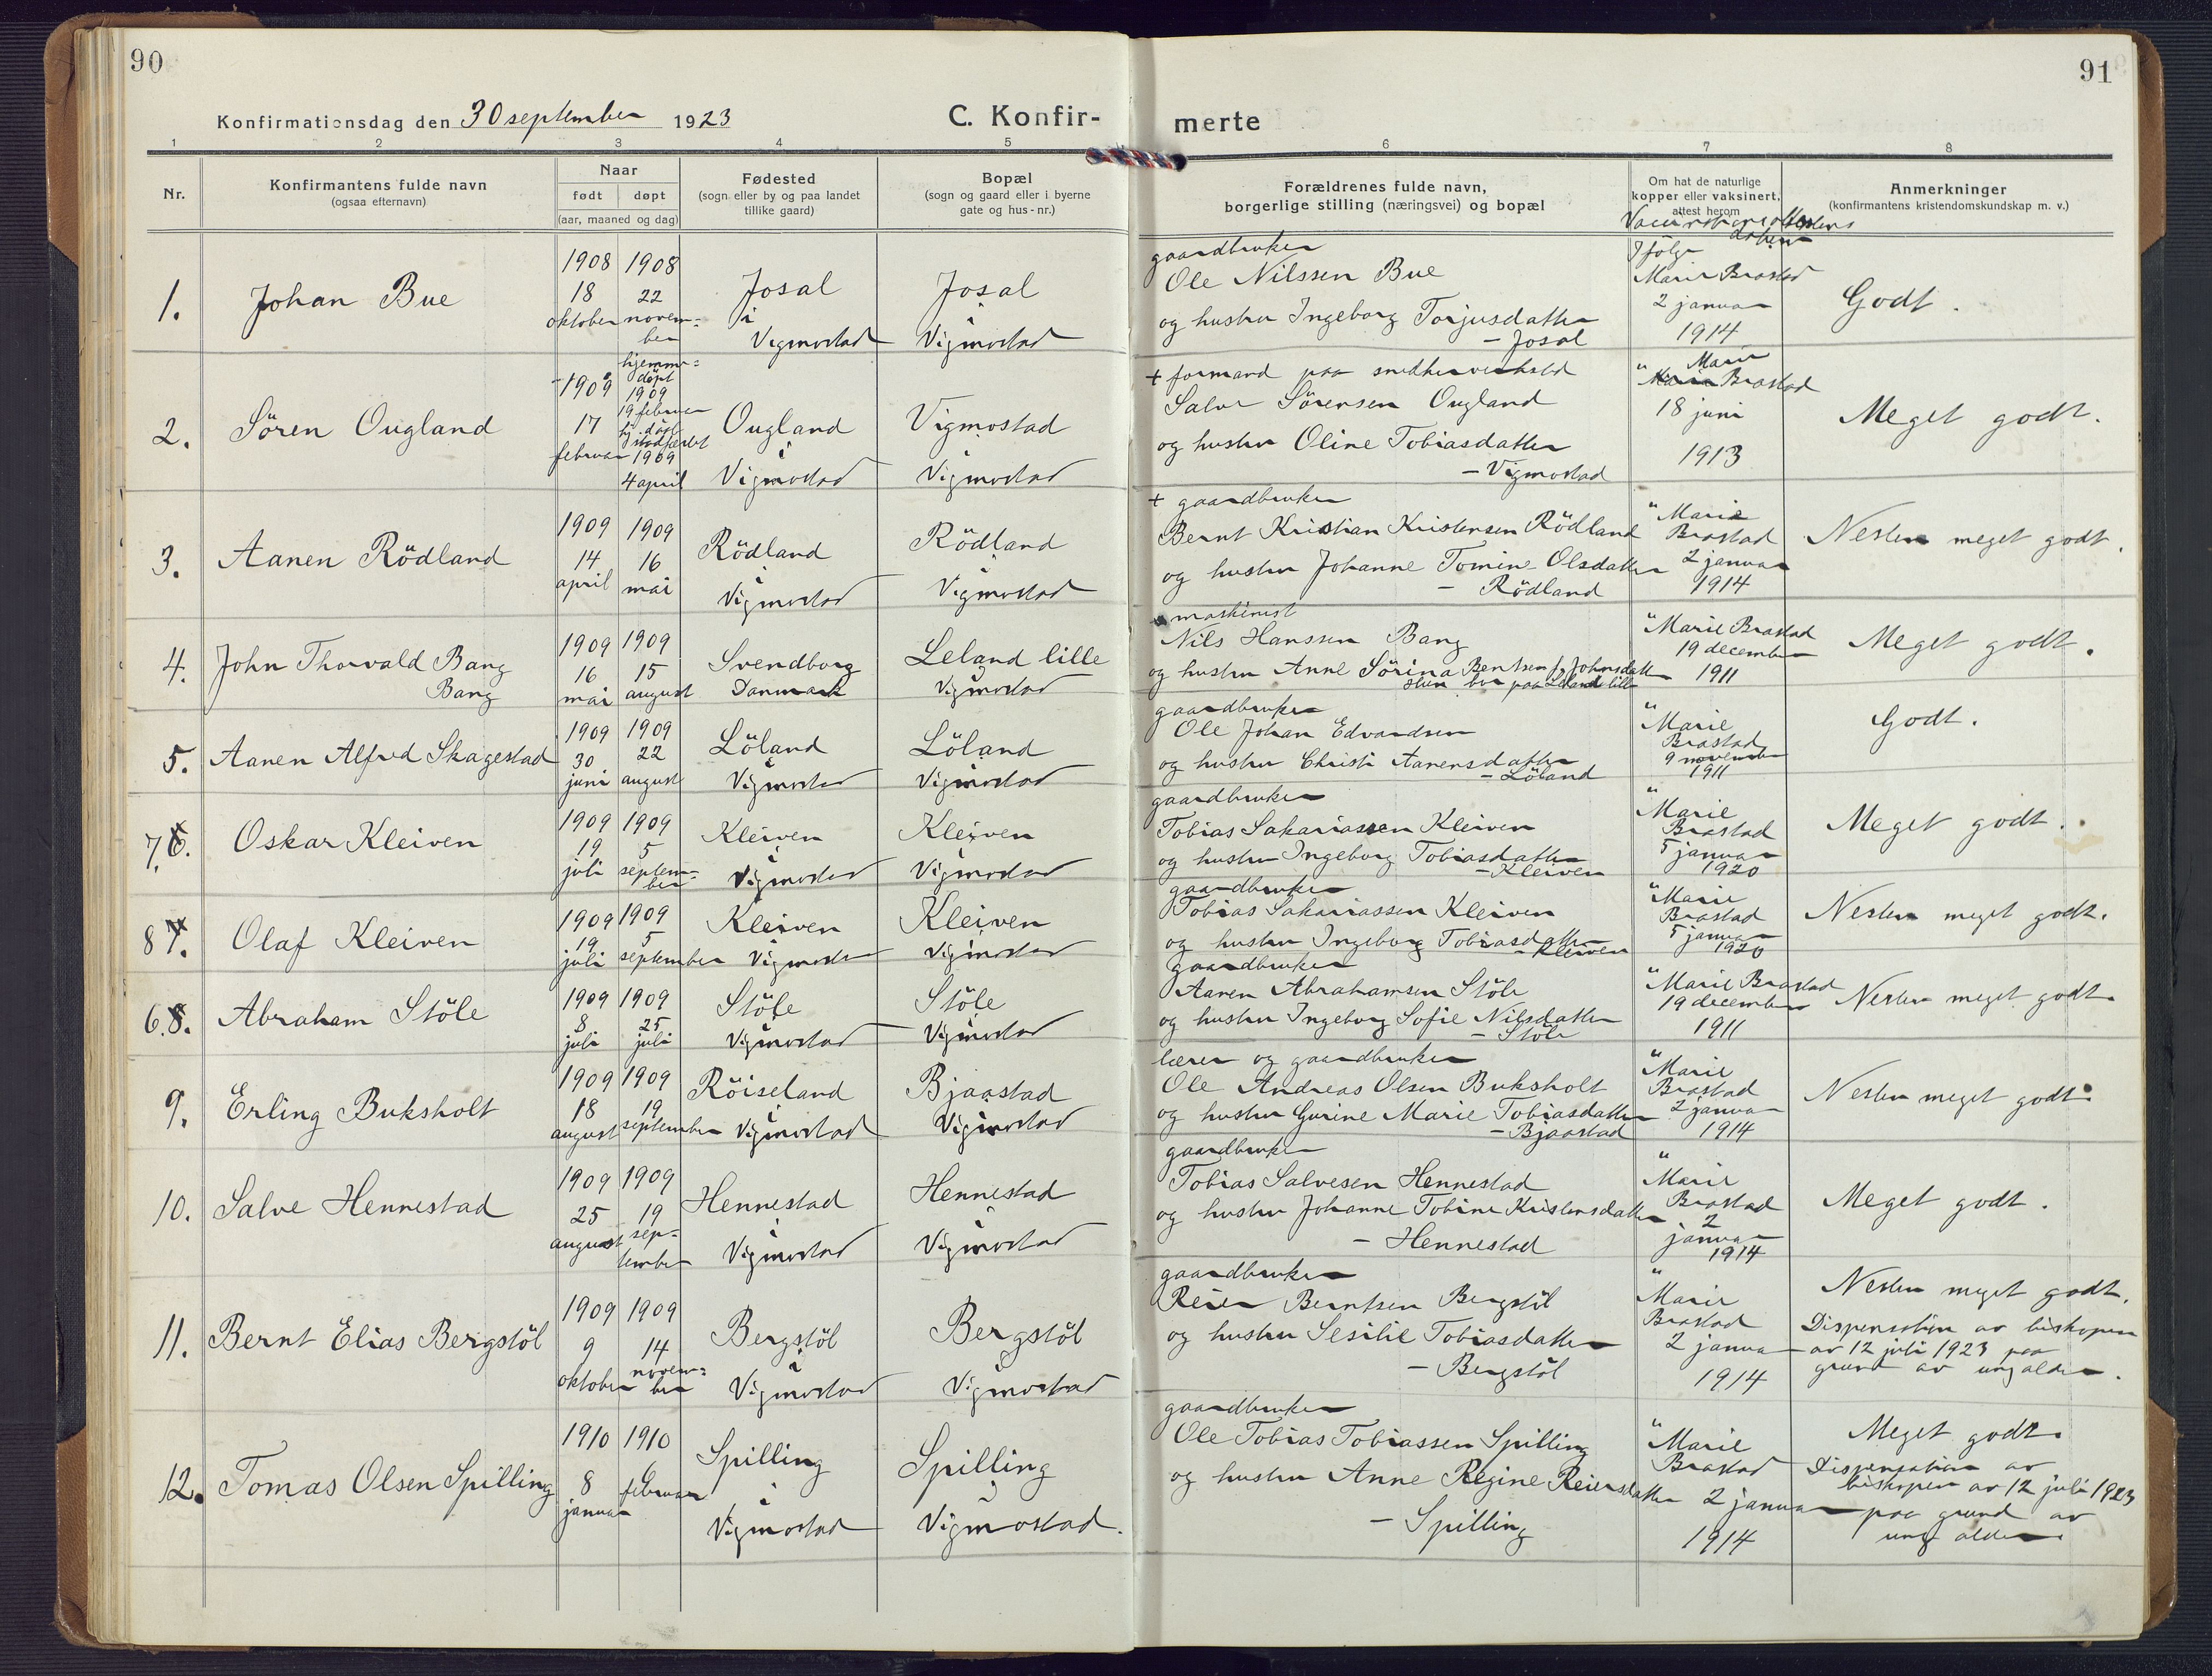 90
91
Konfirmationsdag den 30 september 1923
C. Konfir-
merte
1 2 3 4 5 6 7 8
Nr.
Konfirmantens fulde navn
(ogsaa efternavn)
Naar
født døpt
(aar, maaned og dag)
Fødested
(sogn eller by og paa landet
tillike gaard)
Bopæl
(sogn og gaard eller i byerne
gate og hus-nr.)
Forældrenes fulde navn,
borgerlige stilling (næringsvei) og bopæl
Om hat de naturlige
kopper eller vaksinert,
attest herom
Anmerkninger
(konfirmantens kristendomskundskap m. v.)
1.
Johan Bue
1908
18
oktober
1908
22
novem-
ber
Josal
i
Vigmostad
Josal
i
Vigmostad
gaardbruker
Ole Nilssen Bue
og hustru Ingeborg Torjusdatter
- Josal
Ifølge
Marie Brastad
2 januar
1914
Godt.
2.
Sören Ougland
1909
17
februar
hjemme-
døpt
1909
19 februar
hj.døpt
stadfæstet
1909
4 april
Ougland
i
Vigmostad
Vigmostad
i
Vigmostad
+ formand paa snedkerverksted
Salve Sörensen Ougland
og hustru Oline Tobiasdatter
- Vigmostad
" Marie
Brastad
18 juni
1913
Meget godt.
3.
Aanen Rödland
1909
14
april
1909
16
mai
Rödland
i
Vigmostad
Rödland
i
Vigmostad
+ gaardbruker
Bernt Kristian Kristensen Rödland
og hustru Johanne Tomine Olsdatter
- Rödland
" Marie
Brastad
2 januar
1914
Nesten meget godt.
4.
John Thorvald Bang
Bang
1909
16
mai
1909
15
august
Svendborg
Danmark
Leland lille
i
Vigmostad
maskinist
Nils Hanssen Bang
og hustru Anne Sörina Bentsen f. Johnsdatter
Hun bor paa Leland lille
" Marie Brastad
19 december
1911
Meget godt.
5.
Aanen Alfred Skagestad
1909
30
juni
1909
22
august
Löland
i
Vigmostad
Löland
i
Vigmostad
gaardbruker
Ole Johan Edvardsen
og hustru Christi Aanensdatter
- Löland
" Marie
Brastad
9 november
1911
Godt.
7. 6.
Oskar Kleiven
1909
19
juli
1909
5
septem-
ber
Kleiven
i
Vigmostad
Kleiven
i
Vigmostad
gaardbruker
Tobias Sakariassen Kleiven
og hustru Ingeborg Tobiasdatter
- Kleiven
" Marie
Brastad
5 januar
1920
Meget godt.
8 7.
Olaf Kleiven
1909
19
juli
1909
5
september
Kleiven
i
Vigmostad
Kleiven
i
Vigmostad
gaardbruker
Tobias Sakariassen Kleiven
og hustru Ingeborg Tobiasdatter
- Kleiven
" Marie
Brastad
5 januar
1920
Nesten meget godt.
6. 8.
Abraham Stöle
1909
8
juli
1909
25
juli
Stöle
i
Vigmostad
Stöle
i
Vigmostad
gaardbruker
Aanen Abrahamsen Stöle
og hustru Ingeborg Sofie Nilsdatter
- Stöle
" Marie Brastad
19 december
1911
Nesten meget godt.
9.
Erling Buksholt
1909
18
august
1909
19
september
Röiseland
i
Vigmostad
Bjaastad
i
Vigmostad
lærer og gaardbruker
Ole Andreas Olsen Buksholt
og hustru Gurine Marie Tobiasdatter
- Bjaastad
" Marie
Brastad
2 januar
1914
Nesten meget godt.
10.
Salve Hennestad
1909
25
august
1909
19
sep-
tember
Hennestad
i
Vigmostad
Hennestad
i
Vigmostad
gaardbruker
Tobias Salvesen Hennestad
og hustru Johanne Tobine Kristensdatter
- Hennestad
" Marie
Brastad
2
januar
1914
Meget godt.
11.
Bernt Elias Bergstöl
1909
9
oktober
1909
14
novem-
ber
Bergstöl
i
Vigmostad
Bergstöl
i
Vigmostad
gaardbruker
Reier Berntsen Bergstöl
og hustru Sesilie Tobiasdatter
- Bergstöl
" Marie
Brastad
2 januar
1914
Nesten meget godt.
Dispensation av biskopen
av 12 juli 1923 paa
grund av ung alder.
12.
Tomas Olsen Spilling
1910
8
januar
1910
6
februar
Spilling
i
Vigmostad
Spilling
i
Vigmostad.
gaardbruker
Ole Tobias Tobiassen Spilling
og hustru Anne Regine Reiersdatter
- Spilling
" Marie
Brastad
2 januar
1914
Meget godt.
Dispensation av
biskopen av 12 juli 1923
paa grund av
ung alder.